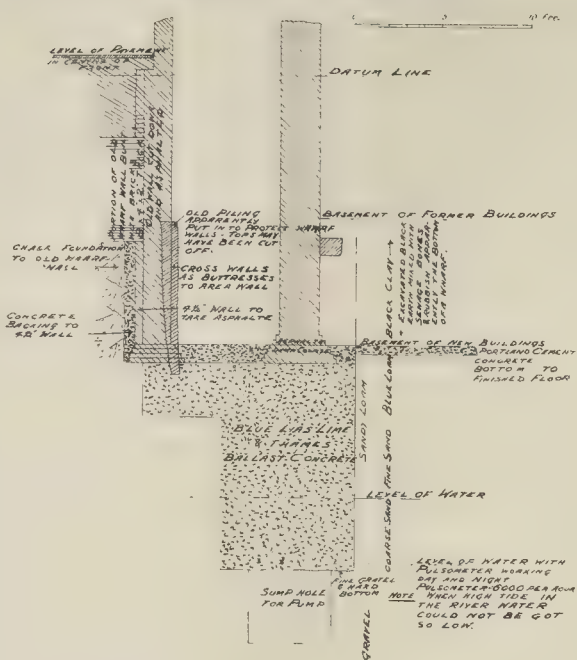 0 5 10 FEET.
LEVEL OF PAVEMENT
IN CENTRE OF
FRONT
DATUM LINE
PORTION OF OLD
WHARF WALL BUILT
WITH BRICKS
OLD WALL CUT DOWN
AND ASPHALTED
OLD PILING
APPARENTLY
PUT IN TO PROTECT WHARF
WALLS - TOPS MAY
HAVE BEEN CUT
OFF.
BASEMENT OF FORMER BUILDINGS
CHALK FOUNDATION
TO OLD WHARF
WALL
CROSS WALLS
AS BUTTRESSES
TO AREA WALL
4½" WALL TO
TAKE ASPHALTE
CONCRETE
BACKING TO
4½" WALL
BLACK CLAY
& EXCAVATED BLACK
EARTH MIXED WITH
SEWAGE BONES
& RUBBISH APPAR-
ENTLY THE BOTTOM
OF A WHARF.
ASPHALTE
DAMP COURSE
BASEMENT OF NEW BUILDINGS
PORTLAND CEMENT
CONCRETE
BOTTOM TO
FINISHED FLOOR
BLUE LIAS LIME
& THAMES
BALLAST CONCRETE
SANDY LOAM
BLUE LOAM
FINE SAND
COARSE SAND
LEVEL OF WATER
FINE GRAVEL
& HARD
BOTTOM
SUMP HOLE
FOR PUMP
GRAVEL
LEVEL OF WATER WITH
PULSOMETER WORKING
DAY AND NIGHT
PULSOMETER·6000 PER HOUR
NOTE WHEN HIGH TIDE IN
THE RIVER WATER
COULD NOT BE GOT
SO LOW.